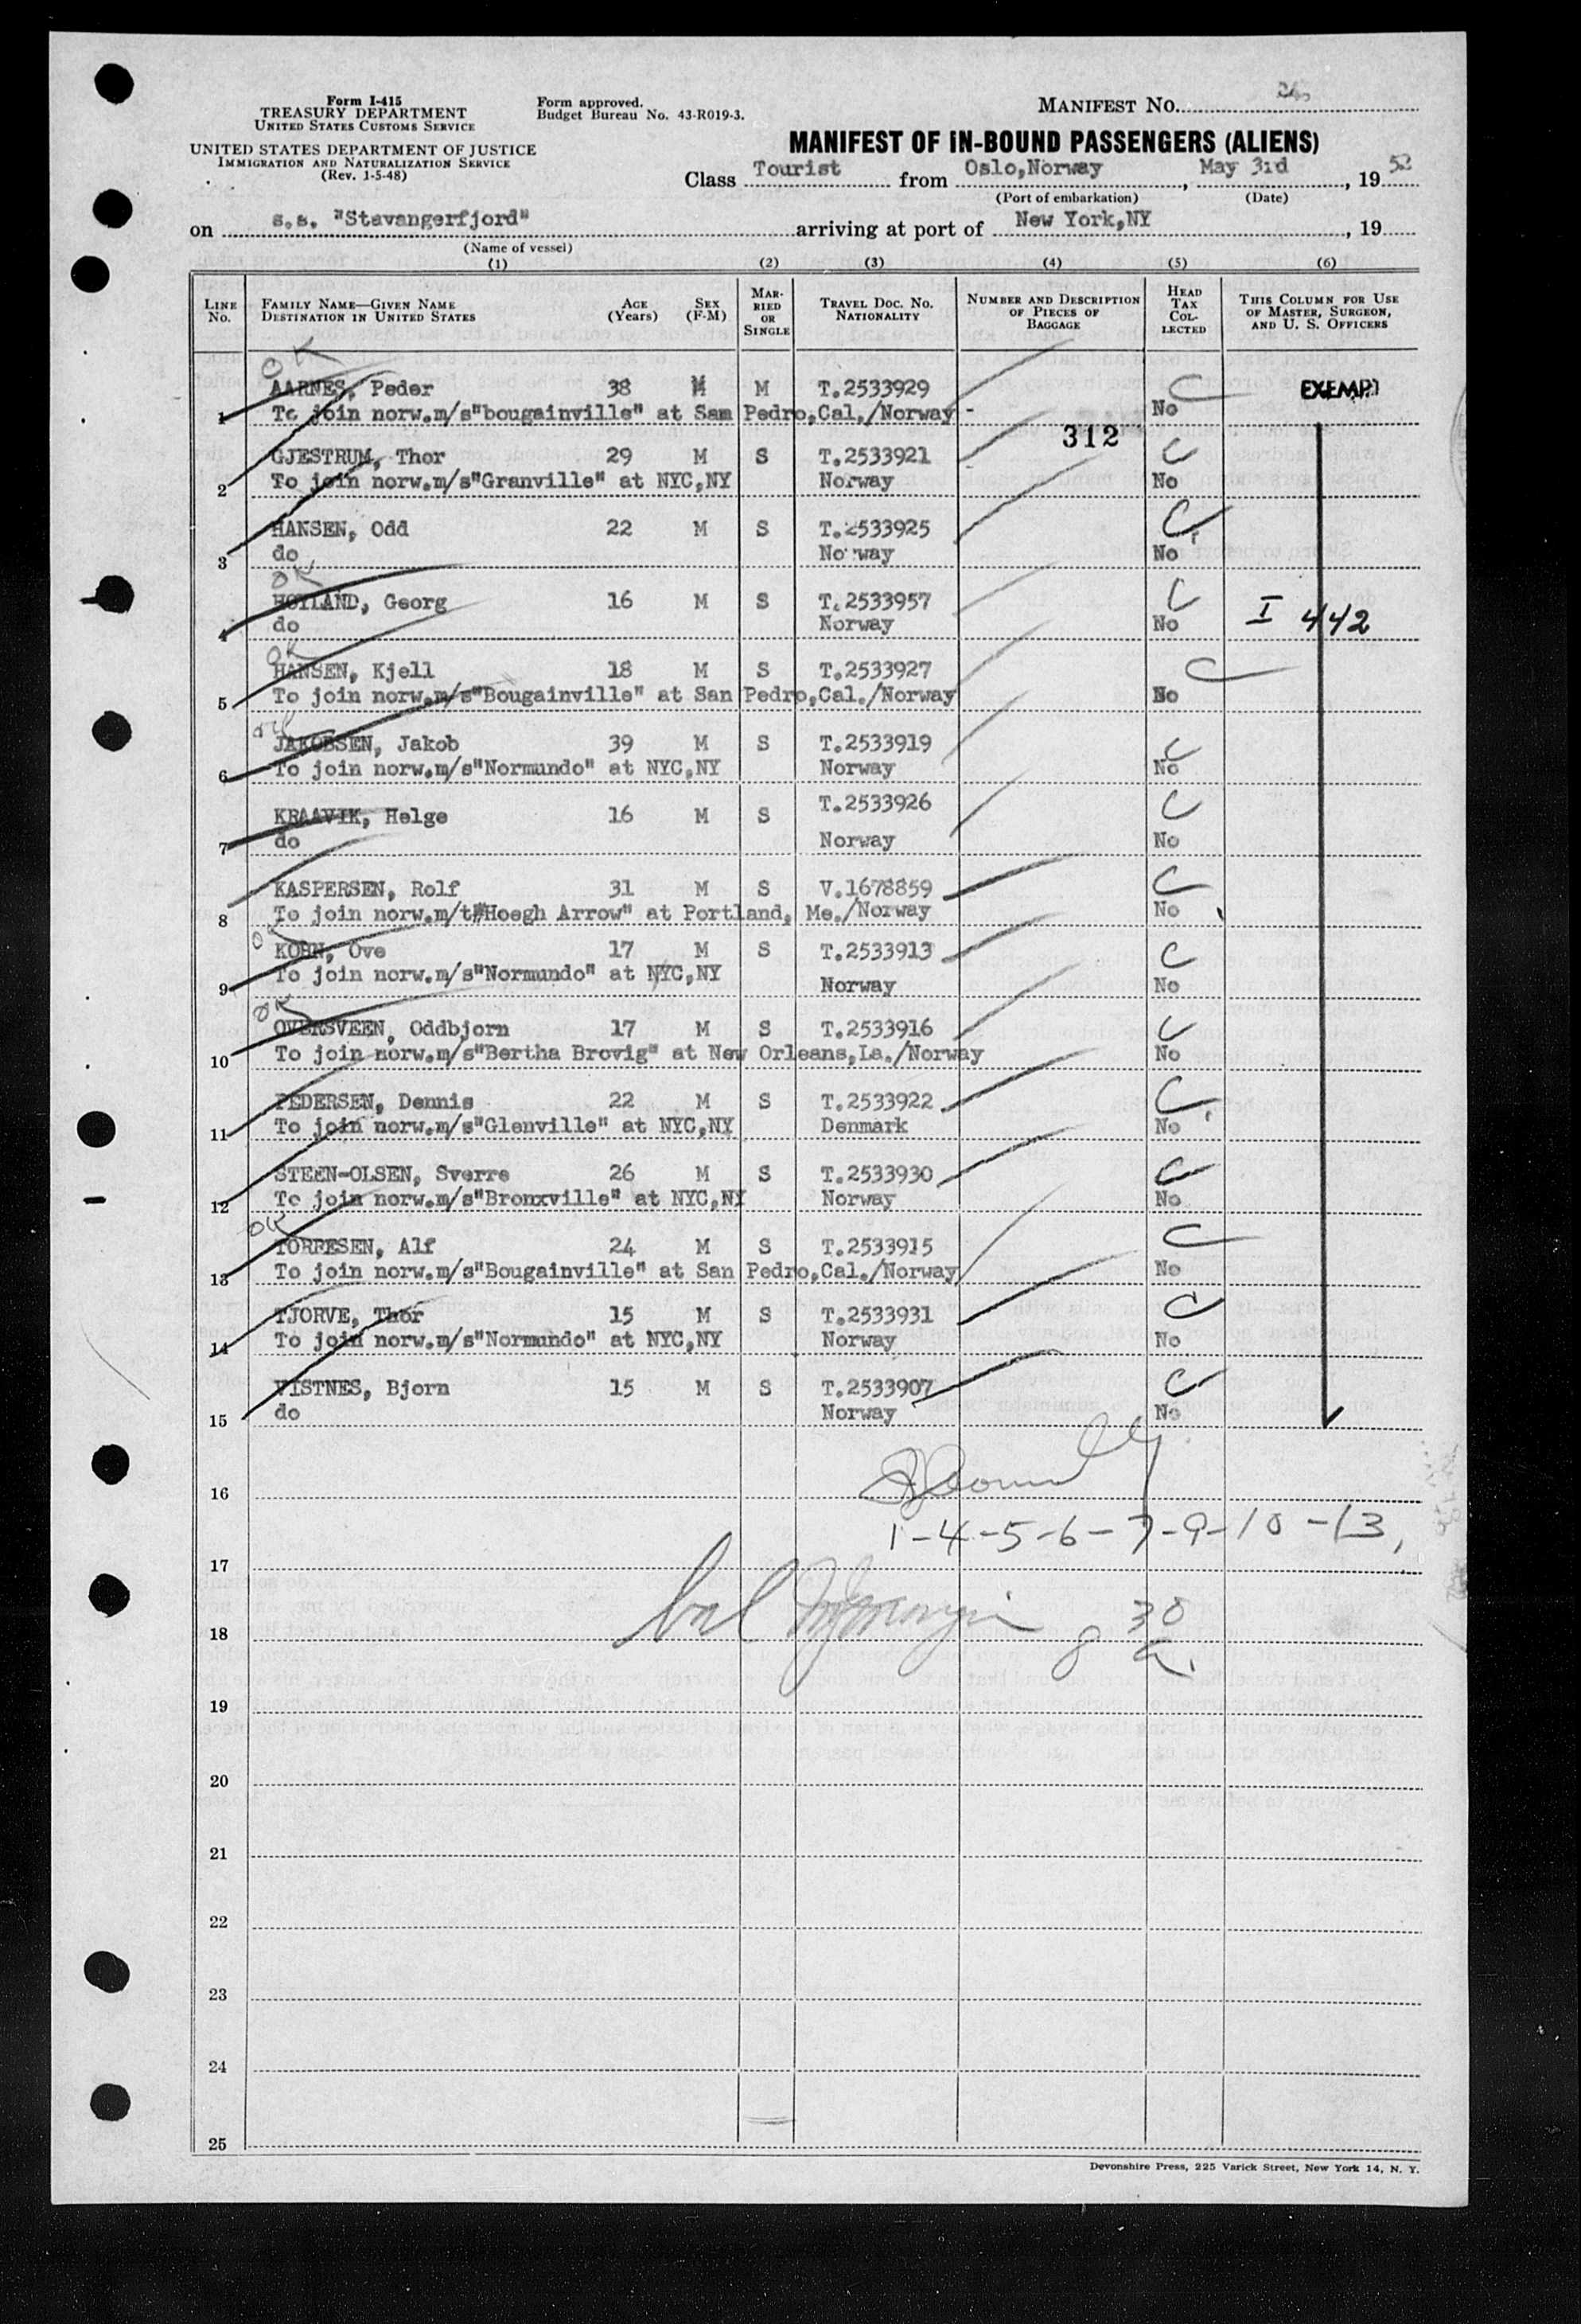 Form I-415
TREASURY DEPARTMENT
UNITED STATES CUSTOMS SERVICE
UNITED STATES DEPARTMENT OF JUSTICE
IMMIGRATION AND NATURALIZATION SERVICE
(Rev. 1-5-48)
Form approved.
Budget Bureau No. 43-R019-3.
MANIFEST NO.
MANIFEST OF IN-BOUND PASSENGERS (ALIENS)
Class Tourist from Oslo,Norway, May 31d, 19 52
(Port of embarkation) (Date)
on s.s. "Stavangerfjord" arriving at port of New York,NY, 19
(Name of vessel)
(1) (2) (3) (4) (5) (6)
LINE NO. FAMILY NAME—GIVEN NAME DESTINATION IN UNITED STATES AGE (Years) SEX (F-M) MARRIED OR SINGLE TRAVEL DOC. NO. NATIONALITY NUMBER AND DESCRIPTION OF PIECES OF BAGGAGE HEAD TAX COLLECTED THIS COLUMN FOR USE OF MASTER, SURGEON, AND U. S. OFFICERS
OK
AARNES, Peder 38 M M T.2533929 C EXEMPT
1 To join norw.m/s"bougainville" at San Pedro,Cal./Norway - No
312
GJESTRUM, Thor 29 M S T.2533921 C
2 To join norw.m/s"Granville" at NYC,NY Norway No
HANSEN, Odd 22 M S T.2533925 C
3 do Norway No
OK
HOYLAND, Georg 16 M S T.2533957 C
4 do Norway No I 442
OK
HANSEN, Kjell 18 M S T.2533927 C
5 To join norw.m/s"Bougainville" at San Pedro,Cal./Norway No
OK
JAKOBSEN, Jakob 39 M S T.2533919 C
6 To join norw.m/s"Normundo" at NYC,NY Norway No
KRAAVIK, Helge 16 M S T.2533926 C
7 do Norway No
KASPERSEN, Rolf 31 M S V.1678859 C
8 To join norw.m/t"Hoegh Arrow" at Portland, Me./Norway No
OK
KORN, Ove 17 M S T.2533913 C
9 To join norw.m/s"Normundo" at NYC,NY Norway No
OK
OVERSVEEN, Oddbjorn 17 M S T.2533916 C
10 To join norw.m/s"Bertha Brovig" at New Orleans,La./Norway No
PEDERSEN, Dennis 22 M S T.2533922 C
11 To join norw.m/s"Glenville" at NYC,NY Denmark No
STEEN-OLSEN, Sverre 26 M S T.2533930 C
12 To join norw.m/s"Bronxville" at NYC,NY Norway No
OK
TORRESEN, Alf 24 M S T.2533915 C
13 To join norw.m/s"Bougainville" at San Pedro,Cal./Norway No
TJORVE, Thor 15 M S T.2533931 C
14 To join norw.m/s"Normundo" at NYC,NY Norway No
VISTNES, Bjorn 15 M S T.2533907 C
15 do Norway No
16
1-4-5-6-7-9-10-13,
17
bal
8 30 a.
18
19
20
21
22
23
24
25
Devonshire Press, 225 Varick Street, New York 14, N. Y.